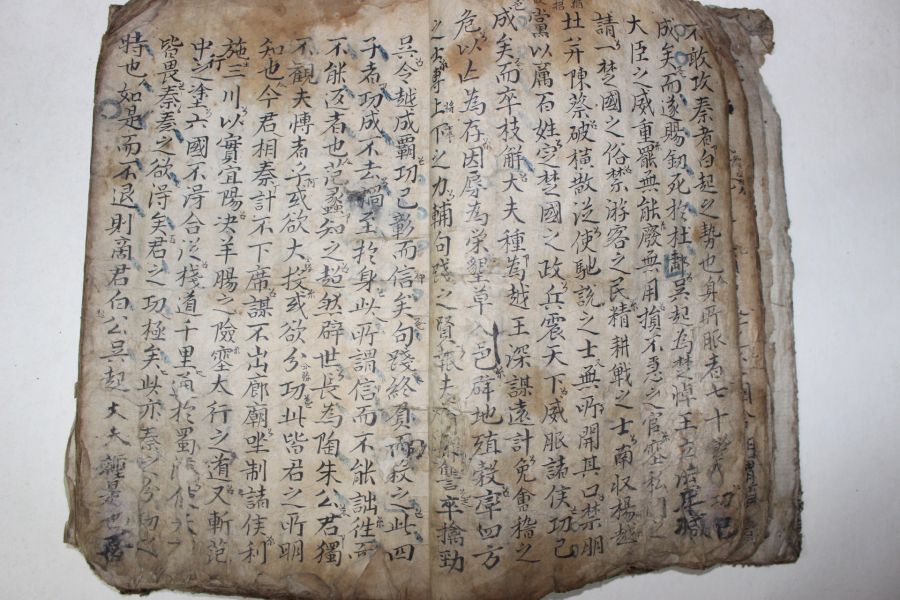 不敢攻秦者白起之勢也身所服者七十城功已
成矣而遂賜釰死於杜郵吳起為楚悼王立法卑减
大臣之威重罷無能廢無用損不急之官塞私之
請一楚國之俗禁游客之民精耕戰之士南収楊越
北并陳蔡破橫散從使馳說之士無所開其口禁朋
黨以厲百姓定楚國之政兵震天下威服諸侯功已
成矣而卒枝解大夫種為越王深謀遠計免會稽之
危以亡為存因辱為榮墾草入邑辟地殖穀率四方
之士專上下之力輔句踐之賢報夫讐卒擒勁
吳令越成霸功已彰而信矣句踐終負而殺之此四
子者功成不去禍至於身此所謂信而不能詘往而
不能返者也范蠡知之超然辟世長為陶朱公君獨
不觀夫博者乎或欲大投或欲分功此皆君之所明
知也今君相秦計不下席謀不出廊廟坐制諸侯利
施三川以實宜陽决羊腸之險塞太行之道又斬范
中行之塗六國不得合從棧道千里通於蜀
皆畏秦秦之欲得矣君之功極矣此亦秦之分功之
時也如是而不退則商君白公吳起大夫種是也吾